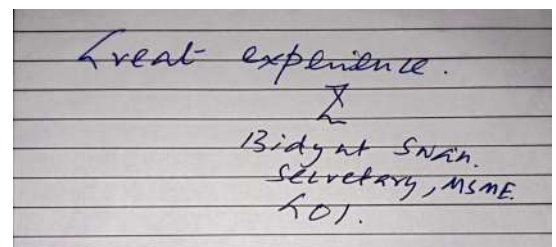 Great experience.
Bidyut Swain.
Secretary, MSME.
GOI.